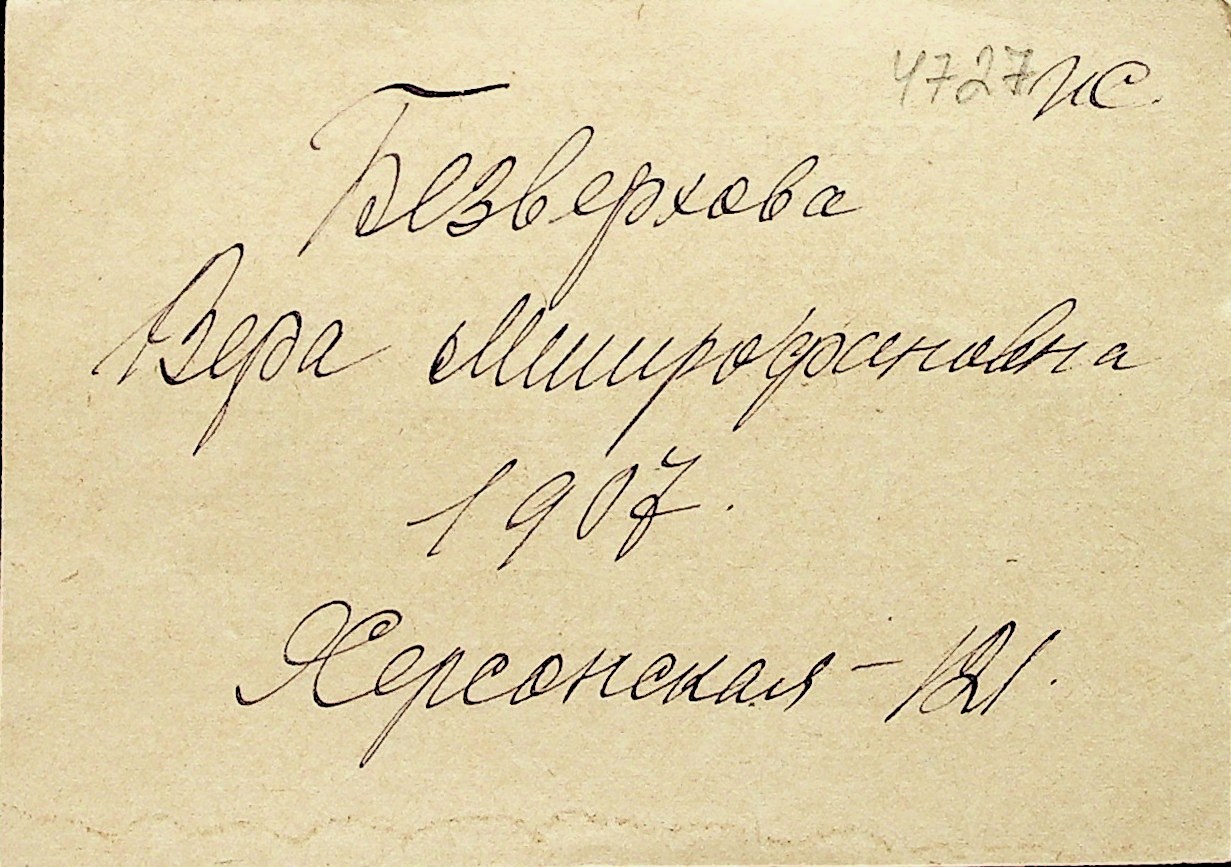 4727 ИС.
Безверхова
Вера Митрофановна
1907.
Херсонская - 121.